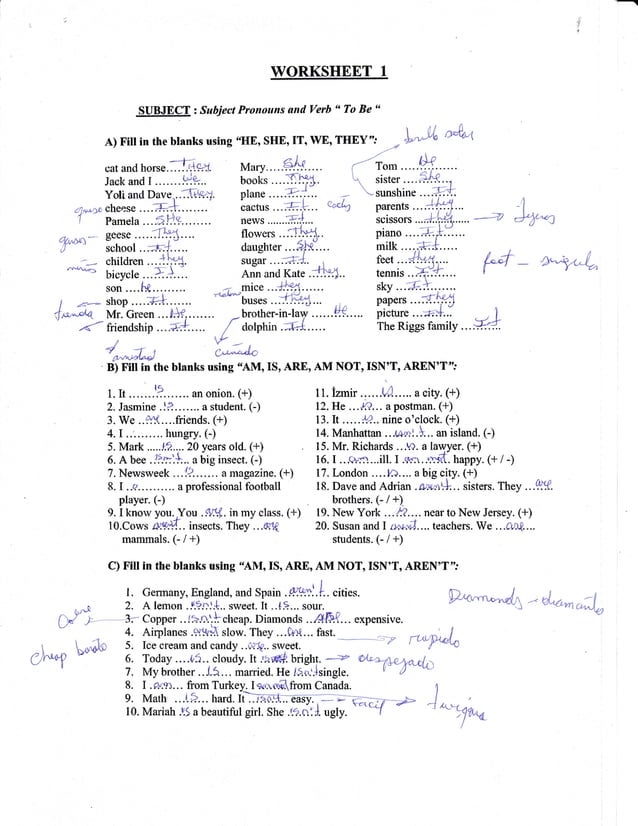 WORKSHEET 1
SUBJECT : Subject Pronouns and Verb “ To Be “
A) Fill in the blanks using “HE, SHE, IT, WE, THEY”:
cat and horse....They.... Mary....She.... Tom ....He....
Jack and I ....we.... books ....They.... sister ....She....
Yoli and Dave....They.... plane ....It.... sunshine ....It....
cheese ....It.... cactus ....It.... parents ....they....
Pamela ....SHe.... news .............. scissors ....they.... Tijeras
geese ....They.... flowers ....They.... piano ....It....
school ....It.... daughter ....She.... milk ....It....
children ....they.... sugar ....It.... feet ....they.... foot - singular
bicycle ....It.... Ann and Kate ....they.... tennis ....It....
son ....he.... mice ....they.... sky ....It....
shop ....It.... buses ....they.... papers ....they....
tienda Mr. Green ....He.... brother-in-law ....He.... picture ....It....
friendship ....It.... dolphin ....It.... The Riggs family ....It....
amistad cuñado
B) Fill in the blanks using “AM, IS, ARE, AM NOT, ISN’T, AREN’T”:
1. It ....is.... an onion. (+) 11. İzmir ....is.... a city. (+)
2. Jasmine ....is.... a student. (-) 12. He ....is.... a postman. (+)
3. We ....are....friends. (+) 13. It ....is.... nine o’clock. (+)
4. I .......... hungry. (-) 14. Manhattan ....isn't.... an island. (-)
5. Mark ....is.... 20 years old. (+) 15. Mr. Richards ....is.... a lawyer. (+)
6. A bee ....isn't.... a big insect. (-) 16. I ....am....ill. I ....am not.... happy. (+ / -)
7. Newsweek ....is.... a magazine. (+) 17. London ....is.... a big city. (+)
8. I .......... a professional football 18. Dave and Adrian ....aren't.... sisters. They ....are....
player. (-) brothers. (- / +)
9. I know you. You ....are.... in my class. (+) 19. New York ....is.... near to New Jersey. (+)
10.Cows ....aren't.... insects. They ....are 20. Susan and I ....aren't.... teachers. We ....are....
mammals. (- / +) students. (- / +)
C) Fill in the blanks using “AM, IS, ARE, AM NOT, ISN’T, AREN’T”:
1. Germany, England, and Spain ....aren't.... cities.
2. A lemon ....isn't.... sweet. It ....is.... sour. Diamonds - diamantes
3. Copper ....isn't.... cheap. Diamonds ....are.... expensive.
4. Airplanes ....aren't.... slow. They ....are.... fast. rapido
cheap barato 5. Ice cream and candy ....are.... sweet.
6. Today ....is.... cloudy. It ....isn't.... bright. despejado
7. My brother ....is.... married. He isn't single.
8. I ....am.... from Turkey. I am not from Canada.
9. Math ....is.... hard. It ....isn't.... easy. facil
10. Mariah is a beautiful girl. She isn't ugly.